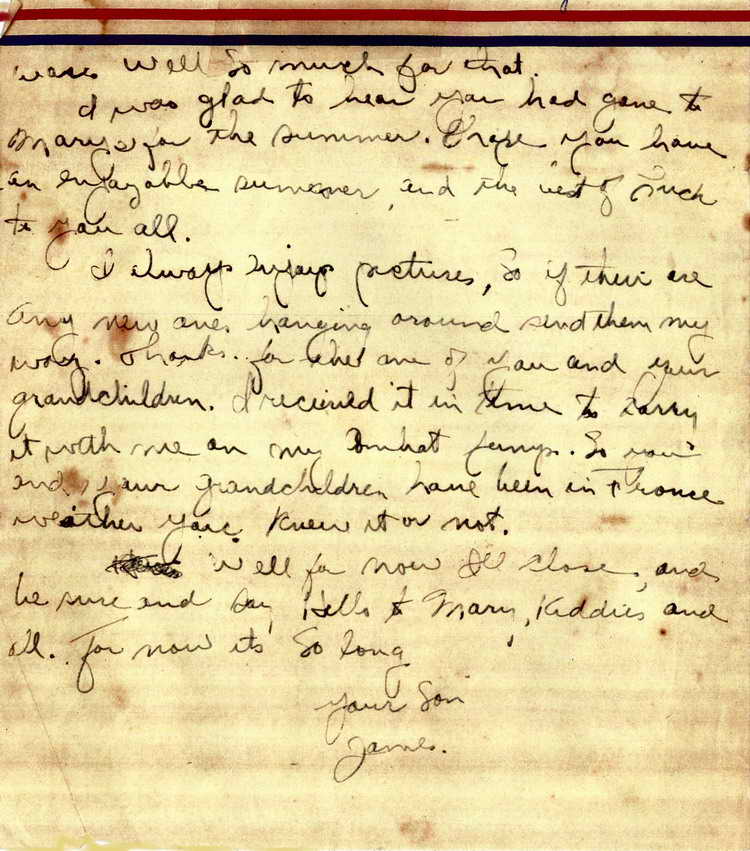 well so much for that.
I was glad to hear you had gone to
Marys for the summer. I hope you have
an enjoyable summer, and the best of luck
to you all.
I always enjoys pictures, so if there are
any new ones hanging around send them my
way. Thanks. for the one of you and your
grandchildren. I recieved it in time to carry
it with me on my Combat jumps. So you
and your grandchildren have been in France
weather you knew it or not.
Well for now I'll close, and
be sure and say Hello to Mary, Kiddies and
all. For now its so long
your Son
James.